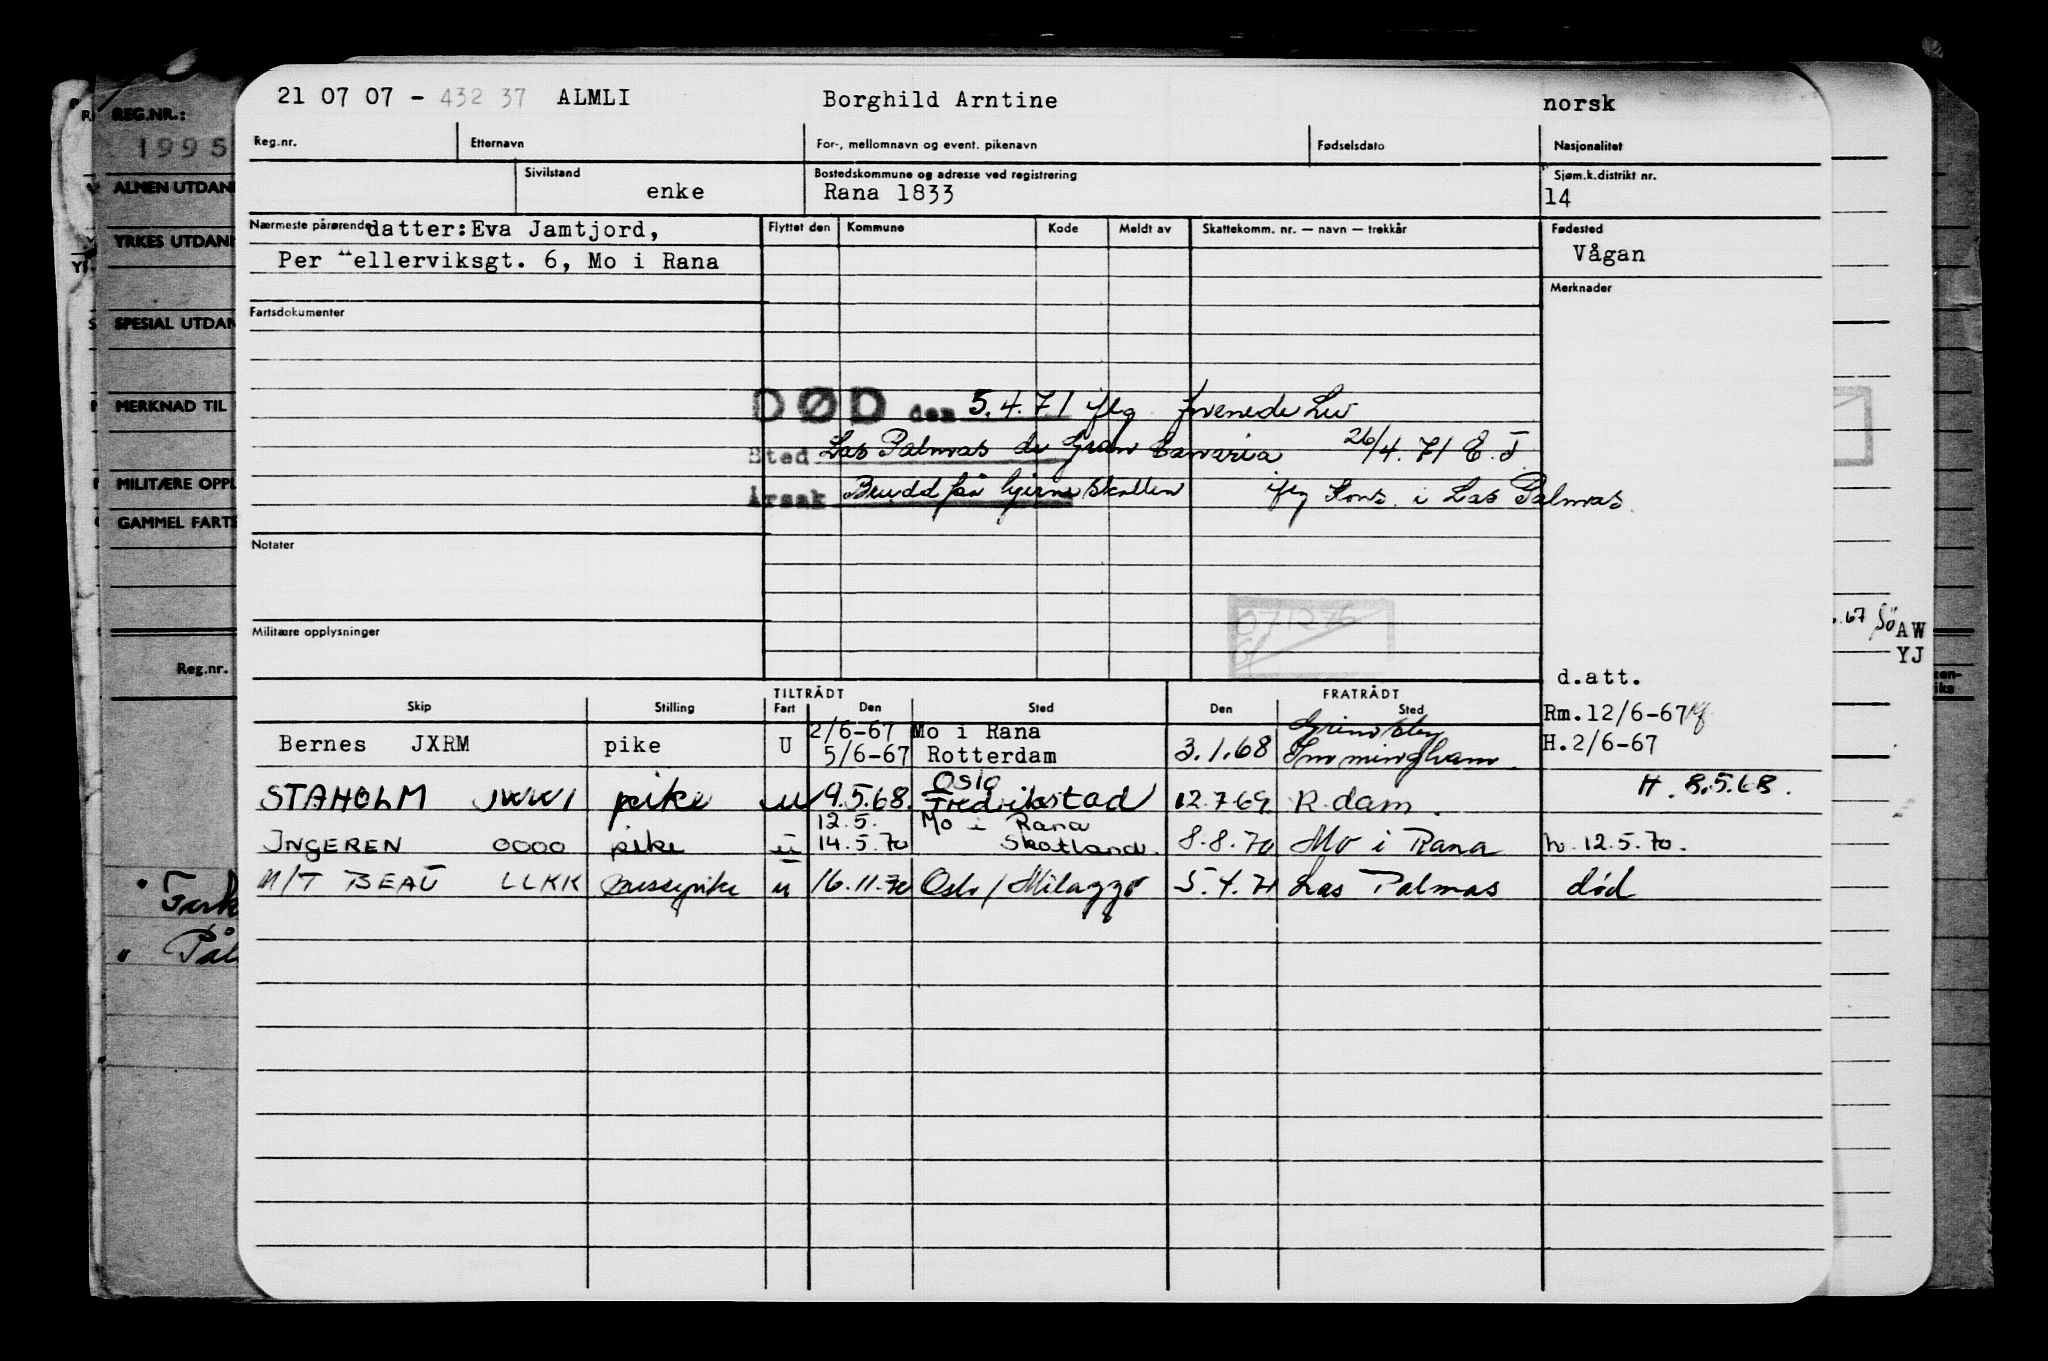 21 07 07 - 432 37 ALMLI Borghild Arntine norsk
Reg.nr. Etternavn For-, mellomnavn og event. pikenavn Fødselsdato Nasjonalitet
Sivilstand Bostedskommune og adresse ved registrering Sjøm.k.distrikt nr.
enke Rana 1833 14
Nærmeste pårørende datter: Eva Jamtjord, Flyttet den Kommune Kode Meldt av Skattekomm. nr. — navn — trekkår Fødested
Per ellerviksgt. 6, Mo i Rana Vågan
Merknader
Fartsdokumenter
DØD den 5.4.71 iflg.
Sted Las Palmas de Gran Canaria 26/4.71 E.J.
Årsak Brudd på hjerneskallen iflg Kons. i Las Palmas.
Notater
071276
Militære opplysninger
d.att.
TILTRÅDT FRATRÅDT
Skip Stilling Fart Den Sted Den Sted
Rm.12/6-67
2/6-67 Mo i Rana Grimsby
Bernes JXRM pike U 5/6-67 Rotterdam 3.1.68 Immingham. H.2/6-67
Oslo H. 8.5.68.
STAHOLM JWWI pike u 9.5.68. Fredrikstad 12.7.69. R.dam.
12.5. Mo i Rana
INGEREN OOOO pike u 14.5.70 Skotland. 8.8.70 Mo i Rana h. 12.5.70.
M/T BEAU LLKK messepike u 16.11.70 Oslo/Milazzo 5.4.71 Las Palmas død
REG.NR.:
1995
ALMEN UTDAN
YRKES UTDANN
SPESIAL UTDAN
MERKNAD TIL
MILITÆRE OPPL
GAMMEL FARTS
Reg.nr.
.67 AW
YJ